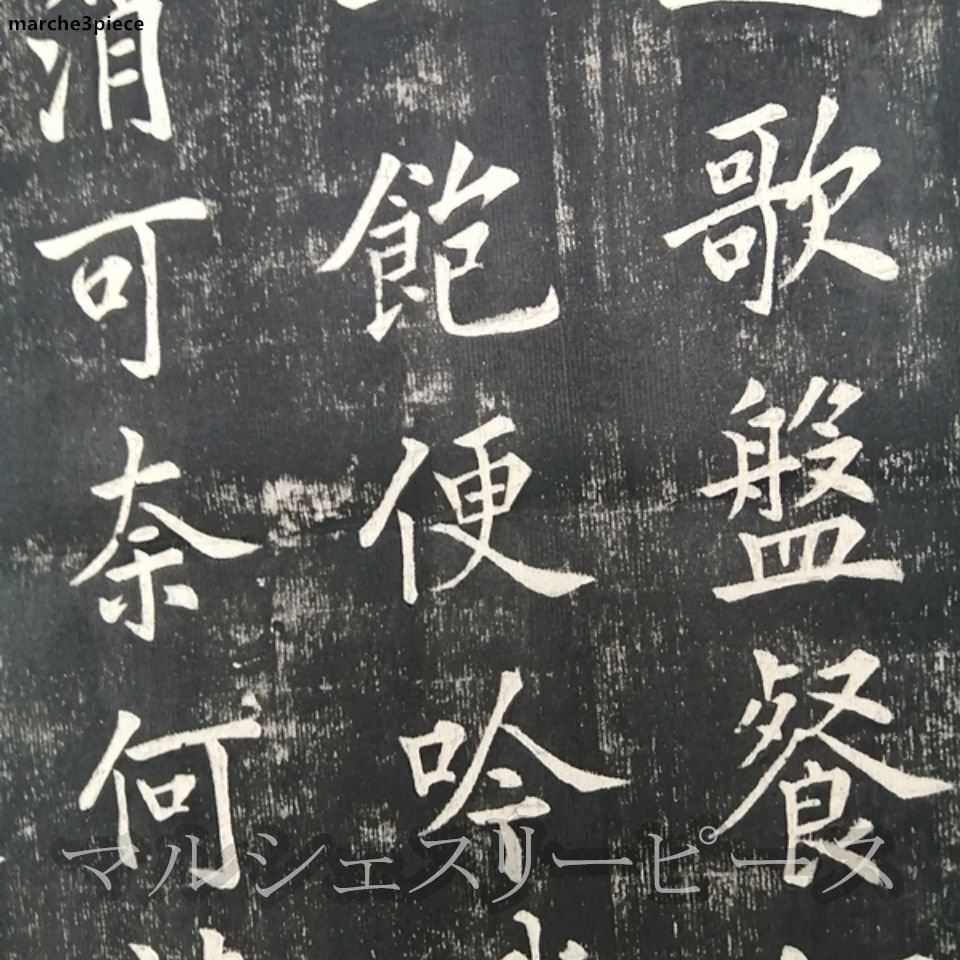 marche3piece
歌盤餐
飽便吟
消可奈何
マルシェスリーピース